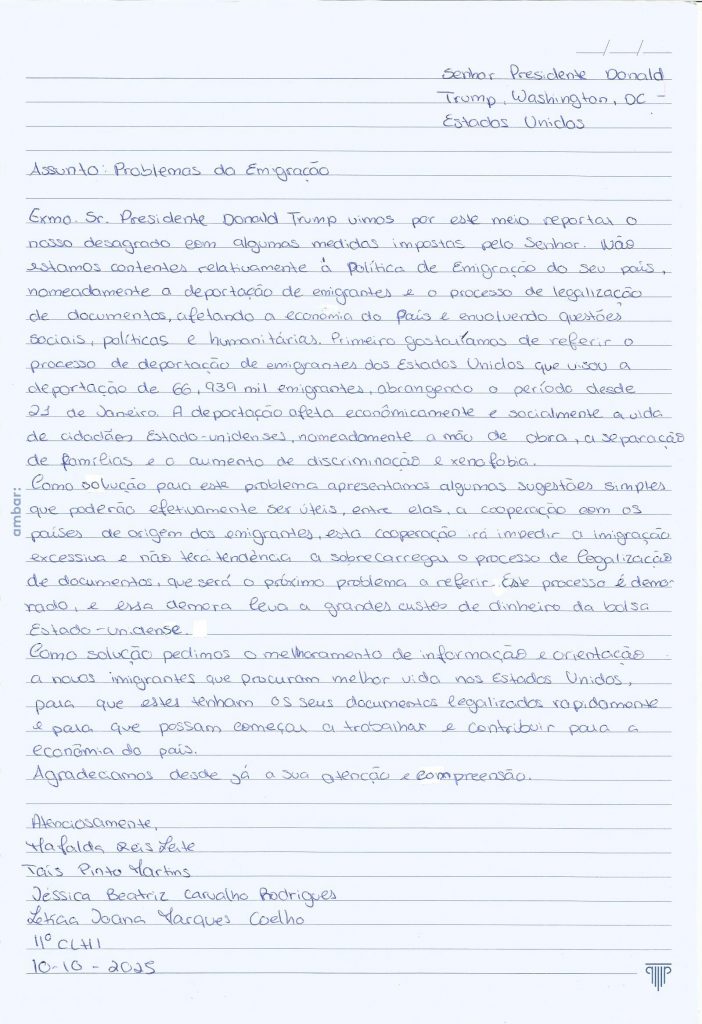 __/__/__
Senhor Presidente Donald
Trump, Washington, DC -
Estados Unidos
Assunto: Problemas da Emigração
Exmo. Sr. Presidente Donald Trump vimos por este meio reportar o
nosso desagrado com algumas medidas impostas pelo Senhor. Não
estamos contentes relativamente à Política de Emigração do seu país,
nomeadamente a deportação de emigrantes e o processo de legalização
de documentos, afetando a económia do País e envolvendo questões
sociais, políticas e humanitárias. Primeiro gostaríamos de referir o
processo de deportação de emigrantes dos Estados Unidos que visou a
deportação de 66,939 mil emigrantes, abrangendo o período desde
21 de Janeiro. A deportação afeta económicamente e socialmente a vida
de cidadães Estado-unidenses, nomeadamente a mão de obra, a separação
de famílias e o aumento de discriminação e xenofobia.
Como solução para este problema apresentamos algumas sugestões simples
que poderão efetivamente ser úteis, entre elas, a cooperação com os
países de origem dos emigrantes, esta cooperação irá impedir a imigração
excessiva e não terá tendência a sobrecarregar o processo de legalização
de documentos, que será o próximo problema a referir. Este processo é demo-
rado, e essa demora leva a grandes custos de dinheiro da bolsa
Estado-unidense.
Como solução pedimos o melhoramento de informação e orientação
a novos imigrantes que procuram melhor vida nos Estados Unidos,
para que estes tenham os seus documentos legalizados rapidamente
e para que possam começar a trabalhar e contribuir para a
económia do país.
Agradeciamos desde já a sua atenção e compreensão.
Atenciosamente,
Mafalda Reis Leite
Taís Pinto Martins
Jéssica Beatriz Carvalho Rodrigues
Letícia Joana Marques Coelho
11º CLH1
10-10-2025
ambar: